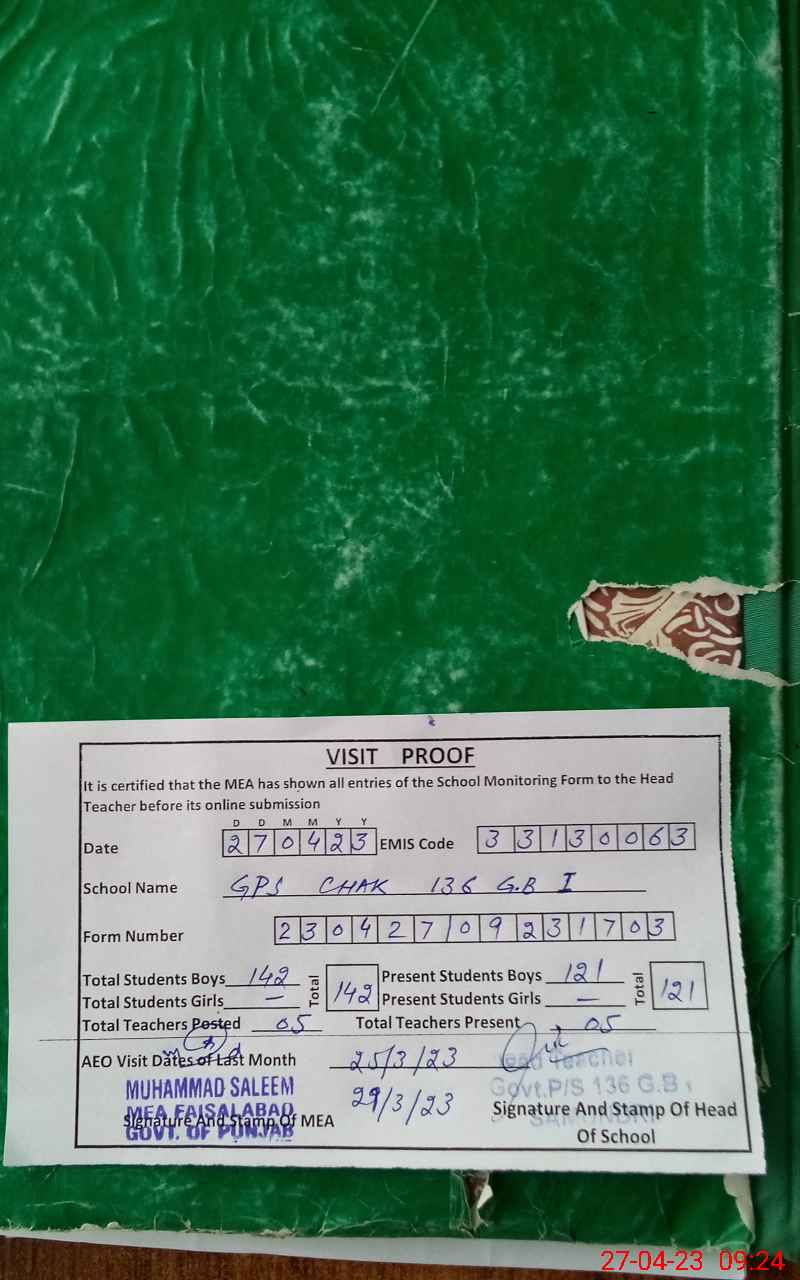 VISIT PROOF
It is certified that the MEA has shown all entries of the School Monitoring Form to the Head
Teacher before its online submission
D D M M Y Y
Date 270423 EMIS Code 33130063
School Name GPS CHAK 136 G.B I
Form Number 2304270923 1703
Total Students Boys 142 Total 142 Present Students Boys 121 Total 121
Total Students Girls — Present Students Girls —
Total Teachers Posted 05 Total Teachers Present 05
AEO Visit Dates of Last Month 25/3/23
29/3/23
Head Teacher
Govt.P/S 136 G.B
SAMUNDRI
MUHAMMAD SALEEM
MEA FAISALABAD
GOVT. OF PUNJAB
Signature And Stamp Of MEA
Signature And Stamp Of Head
Of School
27-04-23 09:24